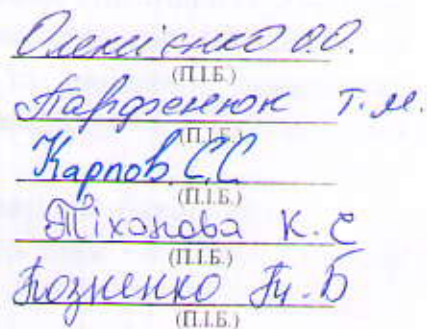 Олексієнко О.О.
(П.І.Б.)
Парфенюк Т.М.
(П.І.Б.)
Карпов С.С
(П.І.Б.)
Тіханова К.Є
(П.І.Б.)
Позненко
(П.І.Б.)